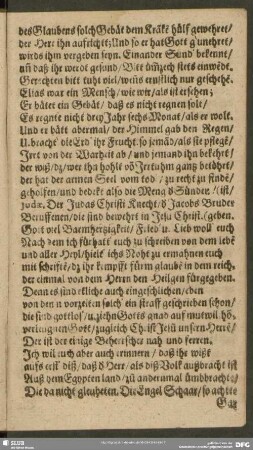 des Glaubens solch Gebät dem Kräke hülf gewehret/
der Herr ihn aufricht; Und so er hat Gott
wirds ihm vergeben seyn. Einander Sünd bekennt/
daß ihr werdt gesund/ Bitt stets einwendt.
Gerechten bitt tuht viel/ weñs ernstlich nur geschehē.
Elias war ein Mensch/ wie wir/ als ist ersehen;
Er bäter ein Gebät/ daß es nicht regnen solt/
Es regnte nicht drey Jahr sechs Monat/ als er wolt.
Und er bätt abermal/ der Himmel gab den Regen/
bracht die Erd ihr Frucht. so jemād/ als sie pflegē/
Jrrt von der Warheit ab/ und jemand ihn bekehrt/
der wiß/ dz/ wer ihn hohlt
der hat der armen Seel vom tod/ zu recht zu findē/
geholfen/ und bedekt also die Meng Sünden. (ist/
Judæ. Der Judas Christi Knecht/ Jacobs Bruder
Beruffenen/ die sind bewehrt in Jesu Christ. (geben.
Gott viel Baemhertzigkeit/ Fried/ Lieb woll euch
Nach dem ich für hatt euch zu schreiben von dem lebē
und aller Heyl/ hielt ichs Noht zu ermahnen euch
mit schrifte/ dz ihr kempfft fürm glaubē in dem reich.
der einmal von dem Herrn den Heilgen fürgegeben.
Dean es sind etliche auch eingeschlichen/ den
von den vorzeiten solch ein straff geschrieben schon/
die sind gottlos/ Gotts gnad auf mutwil
verleugnen Gott/ zugleich Christ Jesū unsern Herrē/
Der ist der einige Beherrscher nah und ferren.
Jch wil euch aber auch erinnern/ daß ihr wißt
aufs erst diß/ daß Herr/ als diß Volk außbracht ist
Auß dem Egypten land/ zu andermal ümbbrachte/
Die da nicht gleubeten. Die Engel Schaar/ so achtte
SLUB